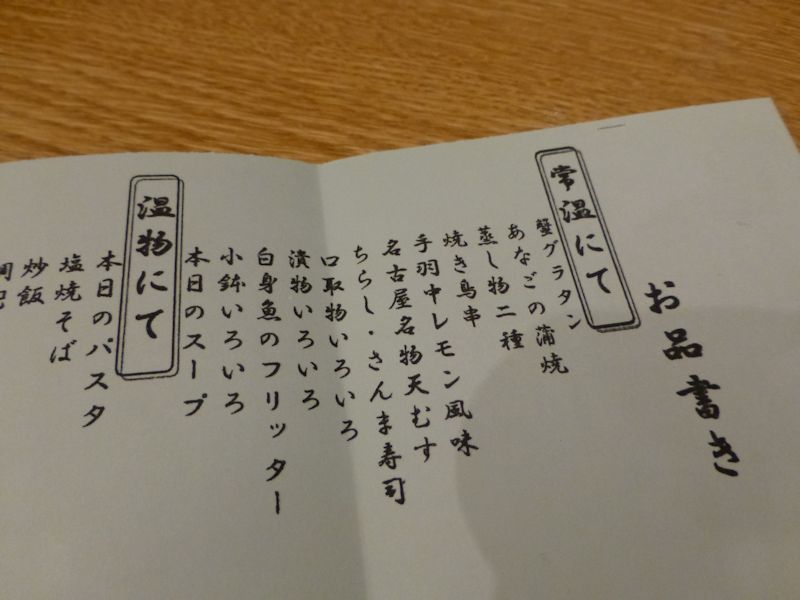 お品書き
常温にて
蟹グラタン
あなごの蒲焼
蒸し物二種
焼き鳥串
手羽中レモン風味
名古屋名物天むす
ちらし・さんま寿司
口取物いろいろ
漬物いろいろ
白身魚のフリッター
小鉢いろいろ
本日のスープ
温物にて
本日のパスタ
塩焼そば
炒飯